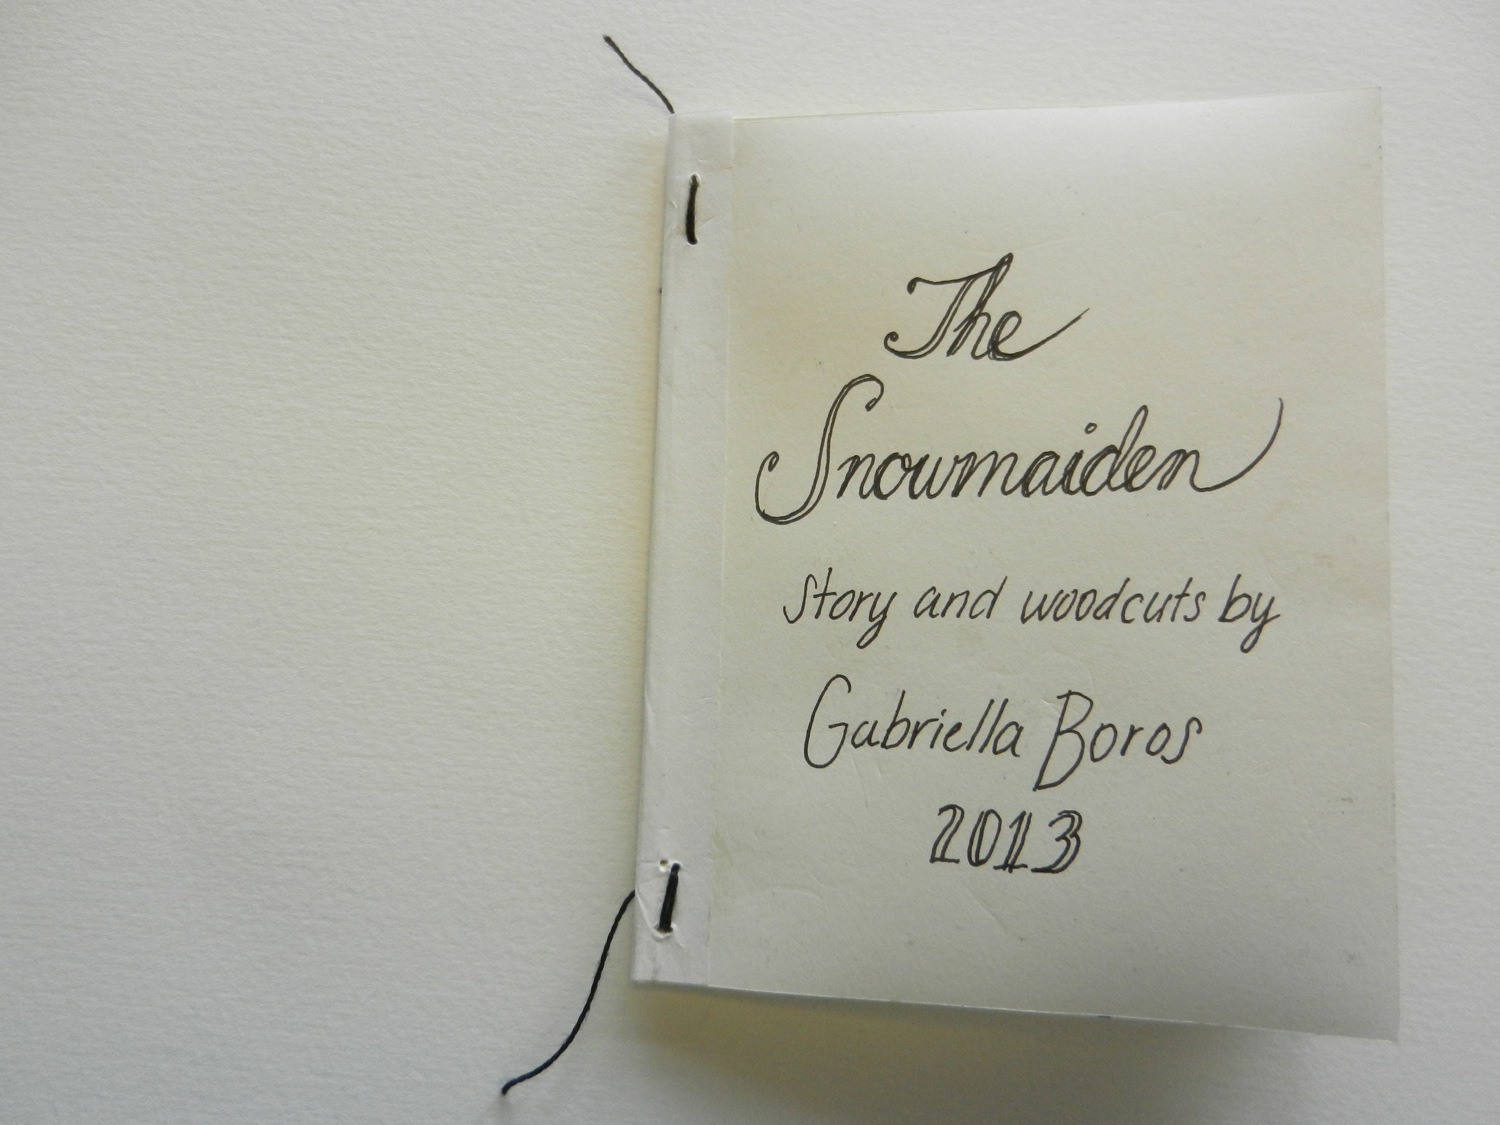 The
Snowmaiden
Story and woodcuts by
Gabriella Boros
2013